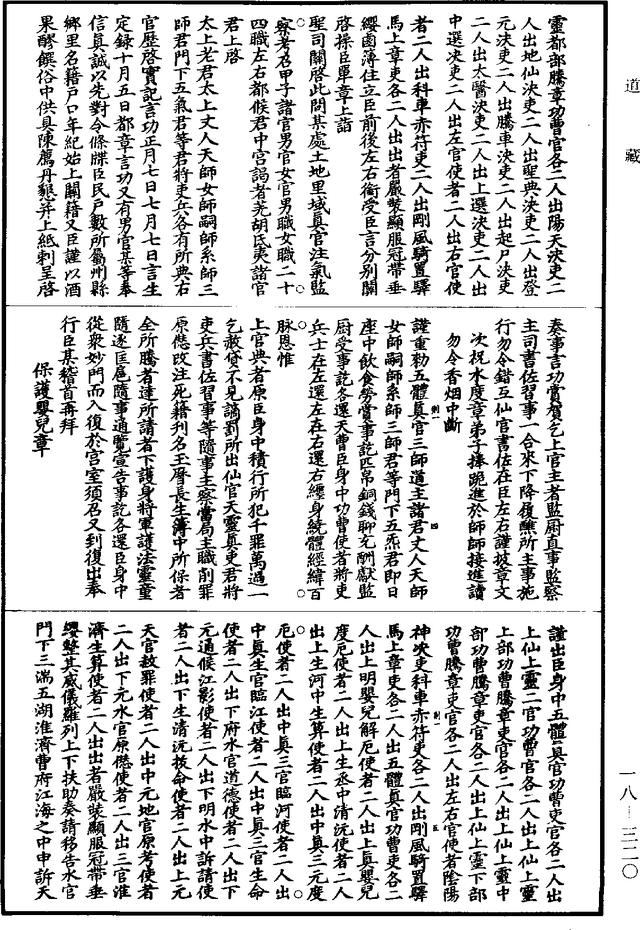 靈都部騰章功曹官各二人出陽天決吏二
人出地仙決吏二人出聖典決吏二人出登
元決吏二人出騰車決吏二人出起尸決吏
二人出太醫決吏二人出上選決吏二人出
中選決吏二人出左官使者二人出右官使
者二人出科車赤符吏二人出剛風騎置驛
馬上章吏各二人出出者嚴裝顯服冠帶垂
纓鹵簿住立臣前後左右銜受臣言分別關
啓操臣單章上詣
聖司關啓此間某處土地里域真官注氣監
察考召甲子諸官男官女官男職女職二十
四職左右都候君中宮謁者羌胡氐夷諸官
君上啓
太上老君太上丈人天師女師嗣師系師三
師君門下五氣君等君將吏兵各有所典右
官歷啓實記言功正月七日七月七日言生
定錄十月五日都章言功又有男官某等奉
信真誠以先對令條牒臣民戶數所屬州縣
鄉里名籍戶口年紀始上關籍又臣謹以酒
果醪饌俗中供具陳薦丹懇并上紙剌呈啓
奏事言功賞賀乞上官主者監廚直事監察
主司書佐習事一合來下降履醮所主事施
行勿令錯互仙官書佐在臣左右謹披章文
次祝水度章弟子捧跪進於師師接進讀
勿令香烟中斷
謹重勑五體真官三師道主諸君丈人天師
女師嗣師系師三師君等門下五炁君即日
座中飲食勞賞事訖匹帛銅錢聊充酬獻監
廚受事訖各還天曹臣身中功曹使者將吏
兵士在左還左在右還右纏身繞體經緯百
脉恩惟
上官典者原臣身中積行所犯千罪萬過一
乞赦貸不見謫罰所出仙官天靈真吏君將
吏兵書佐習事等隨事主察當局主職削罪
原愆改注死籍刋名玉曆長生簿中所保者
全所騰者達所請者下護身將軍護法靈童
隨逐匡扈隨事通覽宣告事訖各還臣身中
從衆妙門而入復於宮室須召又到復出奉
行臣某稽首再拜
保護嬰兒章
謹出臣身中五體真官功曹吏官各二人出
上仙上靈二官功曹官各二人出上仙上靈
上部功曹騰章吏官各二人出上仙上靈中
部功曹騰章吏官各二人出上仙上靈下部
功曹騰章吏官各二人出左右官使者陰陽
神決吏科車赤符吏各二人出剛風騎置驛
馬上章吏各二人出五體真官功曹各二
人出上明嬰兒解厄使者二人出上真嬰兒
度厄使者二人出上生炁中清沅使者二人
出上生河中生算使者二人出中真三元度
厄使者二人出中真三官臨河使者二人出
中真生官臨江使者二人出中真三官生命
使者二人出下府水官道德使者二人出下
元逼候江影使者二人出下明水中訴請使
者二人出下生清沅拔命使者二人出上元
天官赦罪使者二人出中元地官原考使者
二人出下元水官原愆使者二人出三官淮
濟生算使者二人出出者嚴裝顯服冠帶垂
纓整其威儀羅列上下扶助奏請移告水官
門下三河五湖淮濟曹府江海之中申訴天
道藏
一八—三二〇